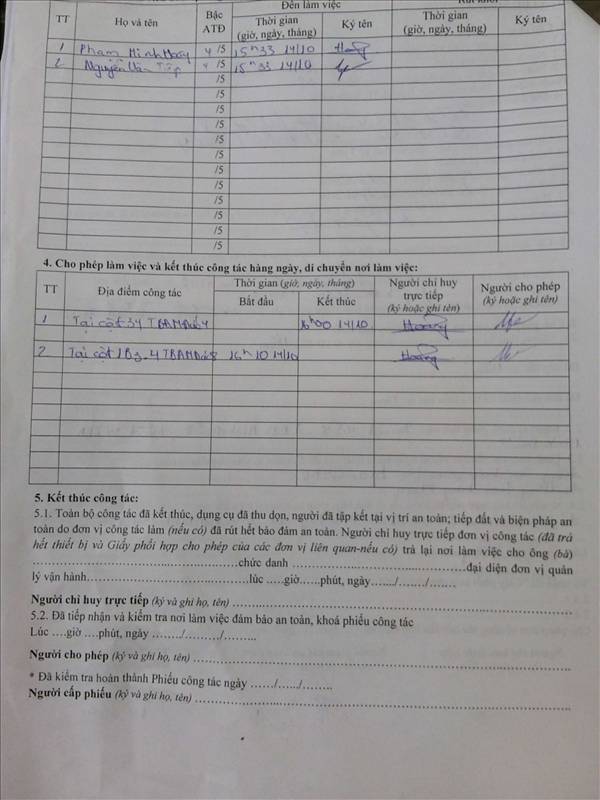 TT Họ và tên Bậc ATĐ Đến làm việc Rút khỏi
Thời gian (giờ, ngày, tháng) Ký tên Thời gian (giờ, ngày, tháng) Ký tên
1 Phạm Minh 4 /5 15h33 14/10
2 Nguyễn Văn 4 /5 15h33 14/10
/5
/5
/5
/5
/5
/5
/5
/5
/5
/5
/5
/5
4. Cho phép làm việc và kết thúc công tác hàng ngày, di chuyển nơi làm việc:
TT Địa điểm công tác Thời gian (giờ, ngày, tháng) Người chỉ huy trực tiếp (ký hoặc ghi tên) Người cho phép (ký hoặc ghi tên)
Bắt đầu Kết thúc
1 Tại cột 34 16h00 14/10 Hoàng
2 Tại cột 16h10 14/10 Hoàng
5. Kết thúc công tác:
5.1. Toàn bộ công tác đã kết thúc, dụng cụ đã thu dọn, người đã tập kết tại vị trí an toàn; tiếp đất và biện pháp an
toàn do đơn vị công tác làm (nếu có) đã rút hết bảo đảm an toàn. Người chỉ huy trực tiếp đơn vị công tác (đã trả
hết thiết bị và Giấy phối hợp cho phép của các đơn vị liên quan-nếu có) trả lại nơi làm việc cho ông (bà)
..............................chức danh ..............................đại diện đơn vị quản
lý vận hành..............................lúc .....giờ......phút, ngày......./......../.......
Người chỉ huy trực tiếp (ký và ghi họ, tên) ..............................
5.2. Đã tiếp nhận và kiểm tra nơi làm việc đảm bảo an toàn, khoá phiếu công tác
Lúc ....giờ ....phút, ngày ......../........./.........
Người cho phép (ký và ghi họ, tên) ..............................
* Đã kiểm tra hoàn thành Phiếu công tác ngày ....../....../........
Người cấp phiếu (ký và ghi họ, tên) ..............................